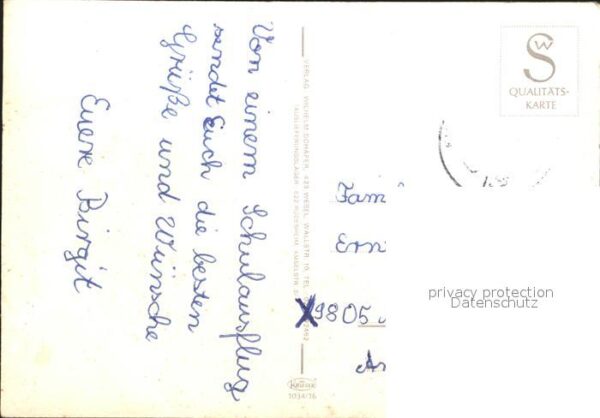 Von einem Schulausflug
sendet Euch die besten
Grüße und Wünsche
Euere Birgit
VERLAG WILHELM SCHÄFER, 423 WESEL, WALLSTR. 10, TEL.
AUSLIEFERUNGSLAGER: 622 RÜDESHEIM
SW
QUALITÄTS-
KARTE
Fam
Ern
X9805
privacy protection
Datenschutz
Krüger
1034/16